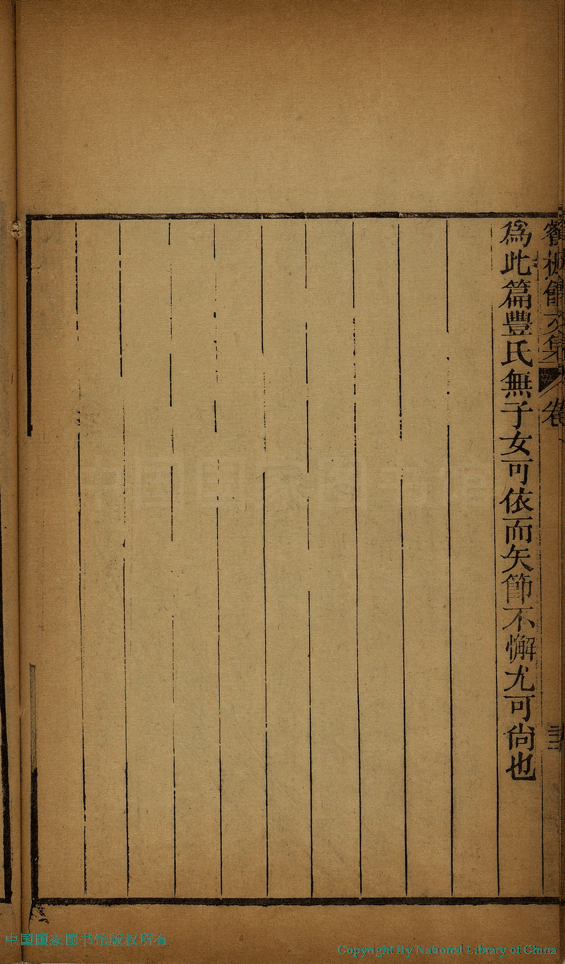 文集 卷
為此篇豐氏無子女可依而矢節不懈尤可尙也
中国国家图书馆版权所有
Copyright By National Library of China